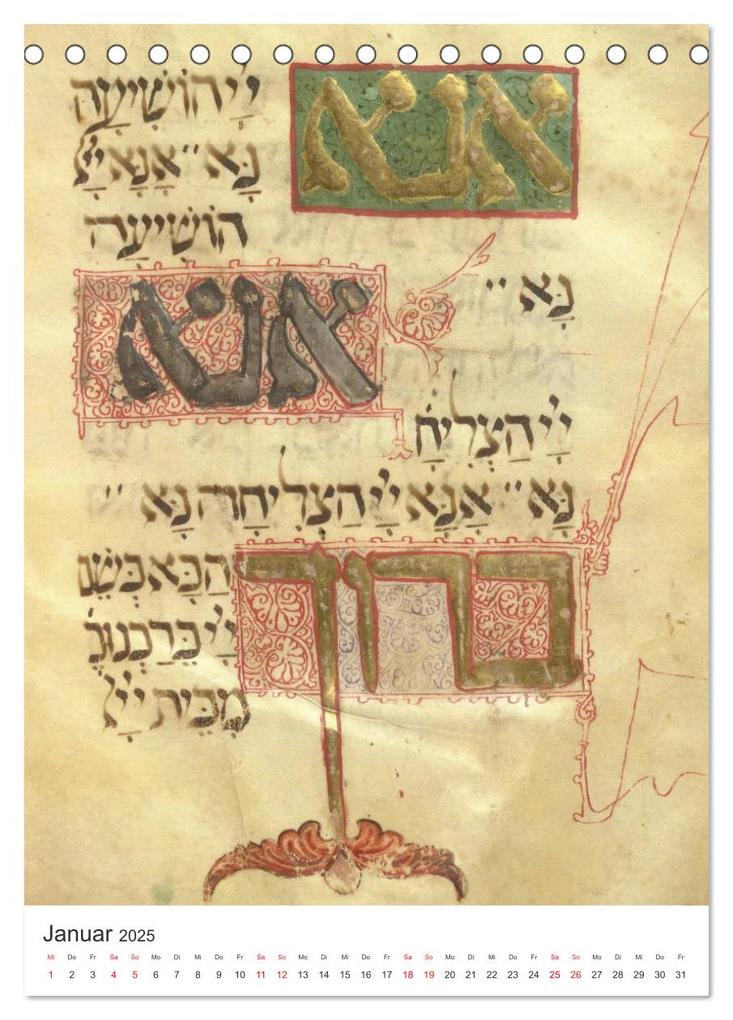 אנא
יְיָ הוֹשִׁיעָה
נָּא ״ אָנָּא יְיָ
הוֹשִׁיעָה
נָּא ״
אנא
יְיָ הַצְלִיחָ
נָּא ״ אָנָּא יְיָ הַצְלִיחָה נָּא ״
ברוך
הַבָּא בְּשֵׁם
יְיָ בֵּרַכְנוּכֶ
מִבֵּית יְיָ
Januar 2025
Mi Do Fr Sa So Mo Di Mi Do Fr Sa So Mo Di Mi Do Fr Sa So Mo Di Mi Do Fr Sa So Mo Di Mi Do Fr
1 2 3 4 5 6 7 8 9 10 11 12 13 14 15 16 17 18 19 20 21 22 23 24 25 26 27 28 29 30 31